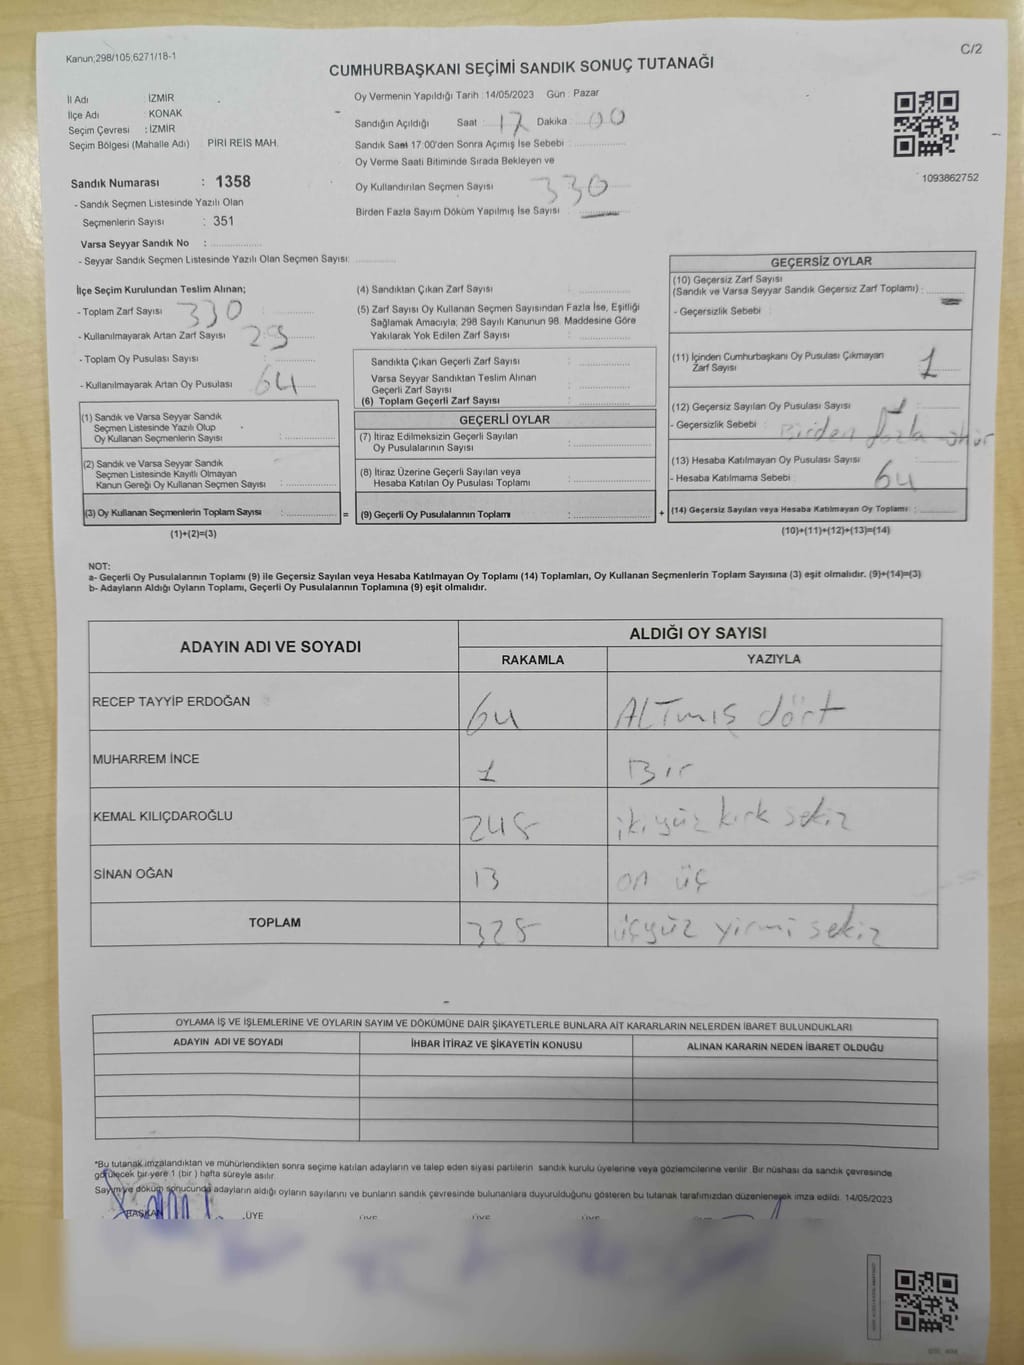 Kanun;298/105;6271/18-1
C/2
CUMHURBAŞKANI SEÇİMİ SANDIK SONUÇ TUTANAĞI
İl Adı : İZMİR
İlçe Adı : KONAK
Seçim Çevresi : İZMİR
Seçim Bölgesi (Mahalle Adı) PİRİ REİS MAH.
Sandık Numarası : 1358
- Sandık Seçmen Listesinde Yazılı Olan
Seçmenlerin Sayısı : 351
Varsa Seyyar Sandık No :
- Seyyar Sandık Seçmen Listesinde Yazılı Olan Seçmen Sayısı:
Oy Vermenin Yapıldığı Tarih : 14/05/2023 Gün : Pazar
Sandığın Açıldığı Saat : 17 Dakika : 00
Sandık Saat 17:00'den Sonra Açımış İse Sebebi :
Oy Verme Saati Bitiminde Sırada Bekleyen ve
Oy Kullandırılan Seçmen Sayısı 330
Birden Fazla Sayım Döküm Yapılmış İse Sayısı :
1093862752
İlçe Seçim Kurulundan Teslim Alınan;
- Toplam Zarf Sayısı : 330
- Kullanılmayarak Artan Zarf Sayısı :
- Toplam Oy Pusulası Sayısı :
- Kullanılmayarak Artan Oy Pusulası : 64
(1) Sandık ve Varsa Seyyar Sandık
Seçmen Listesinde Yazılı Olup
Oy Kullanan Seçmenlerin Sayısı :
(2) Sandık ve Varsa Seyyar Sandık
Seçmen Listesinde Kayıtlı Olmayan
Kanun Gereği Oy Kullanan Seçmen Sayısı :
(3) Oy Kullanan Seçmenlerin Toplam Sayısı : =
(1)+(2)=(3)
(4) Sandıktan Çıkan Zarf Sayısı :
(5) Zarf Sayısı Oy Kullanan Seçmen Sayısından Fazla İse, Eşitliği
Sağlamak Amacıyla; 298 Sayılı Kanunun 98. Maddesine Göre
Yakılarak Yok Edilen Zarf Sayısı :
Sandıkta Çıkan Geçerli Zarf Sayısı :
Varsa Seyyar Sandıktan Teslim Alınan
Geçerli Zarf Sayısı :
(6) Toplam Geçerli Zarf Sayısı :
GEÇERLİ OYLAR
(7) İtiraz Edilmeksizin Geçerli Sayılan
Oy Pusulalarının Sayısı :
(8) İtiraz Üzerine Geçerli Sayılan veya
Hesaba Katılan Oy Pusulası Toplamı :
(9) Geçerli Oy Pusulalarının Toplamı : +
GEÇERSİZ OYLAR
(10) Geçersiz Zarf Sayısı
(Sandık ve Varsa Seyyar Sandık Geçersiz Zarf Toplamı) :
- Geçersizlik Sebebi :
(11) İçinden Cumhurbaşkanı Oy Pusulası Çıkmayan
Zarf Sayısı : 1
(12) Geçersiz Sayılan Oy Pusulası Sayısı : 1
- Geçersizlik Sebebi : Birden fazla
(13) Hesaba Katılmayan Oy Pusulası Sayısı :
- Hesaba Katılmama Sebebi : 64
(14) Geçersiz Sayılan veya Hesaba Katılmayan Oy Toplamı :
(10)+(11)+(12)+(13)=(14)
NOT:
a- Geçerli Oy Pusulalarının Toplamı (9) ile Geçersiz Sayılan veya Hesaba Katılmayan Oy Toplamı (14) Toplamları, Oy Kullanan Seçmenlerin Toplam Sayısına (3) eşit olmalıdır. (9)+(14)=(3)
b- Adayların Aldığı Oyların Toplamı, Geçerli Oy Pusulalarının Toplamına (9) eşit olmalıdır.
ADAYIN ADI VE SOYADI ALDIĞI OY SAYISI
RAKAMLA YAZIYLA
RECEP TAYYİP ERDOĞAN 64 ALTmış dört
MUHARREM İNCE 1 Bir
KEMAL KILIÇDAROĞLU 248 iki yüz kırk sekiz
SİNAN OĞAN 13 on üç
TOPLAM 328 üçyüz yirmi sekiz
OYLAMA İŞ VE İŞLEMLERİNE VE OYLARIN SAYIM VE DÖKÜMÜNE DAİR ŞİKAYETLERLE BUNLARA AİT KARARLARIN NELERDEN İBARET BULUNDUKLARI
ADAYIN ADI VE SOYADI İHBAR İTİRAZ VE ŞİKAYETİN KONUSU ALINAN KARARIN NEDEN İBARET OLDUĞU
"Bu tutanak imzalandıktan ve mühürlendikten sonra seçime katılan adayların ve talep eden siyasi partilerin sandık kurulu üyelerine veya gözlemcilerine verilir. Bir nüshası da sandık çevresinde
görülecek bir yere 1 (bir ) hafta süreyle asılır.
Sayım ve döküm sonucunda adayların aldığı oyların sayılarını ve bunların sandık çevresinde bulunanlara duyurulduğunu gösteren bu tutanak tarafımızdan düzenlenerek imza edildi. 14/05/2023
BAŞKAN ÜYE ÜYE ÜYE ÜYE